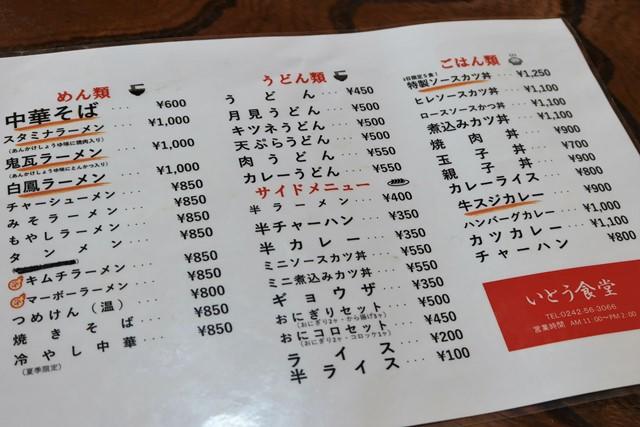 めん類
中華そば ‥‥ ¥600
スタミナラーメン ‥‥ ¥1,000
(あんかけしょうゆ味に焼肉入り)
鬼瓦ラーメン ‥‥ ¥1,000
(あんかけしょうゆ味にとんかつ入り)
白鳳ラーメン ‥‥ ¥1,000
チャーシューメン ‥‥ ¥850
みそラーメン ‥‥ ¥850
もやしラーメン ‥‥ ¥850
タンメン ‥‥ ¥850
キムチラーメン ‥‥ ¥850
マーボーラーメン ‥‥ ¥850
つめけん（温） ‥‥ ¥800
焼きそば ‥‥ ¥850
冷やし中華 ‥‥ ¥850
(夏季限定)
うどん類
うどん ‥‥ ¥450
月見うどん ‥‥ ¥500
キツネうどん ‥‥ ¥500
天ぷらうどん ‥‥ ¥500
肉うどん ‥‥ ¥550
カレーうどん ‥‥ ¥550
サイドメニュー
半ラーメン ‥‥ ¥400
半チャーハン ‥‥ ¥350
半カレー ‥‥ ¥350
ミニソースカツ丼 ‥‥ ¥550
ミニ煮込みカツ丼 ‥‥ ¥550
ギョウザ ‥‥ ¥350
おにぎりセット ‥‥ ¥500
(おにぎり2ヶ・から揚げ3ヶ)
おにコロセット ‥‥ ¥450
(おにぎり2ヶ・コロッケ1ヶ)
ライス ‥‥ ¥200
半ライス ‥‥ ¥100
ごはん類
(1日限定5食)
特製ソースカツ丼 ‥‥ ¥1,250
ヒレソースカツ丼 ‥‥ ¥1,100
ロースソースかつ丼 ‥‥ ¥1,100
煮込みカツ丼 ‥‥ ¥1,100
焼肉丼 ‥‥ ¥900
玉子丼 ‥‥ ¥700
親子丼 ‥‥ ¥900
カレーライス ‥‥ ¥800
牛スジカレー ‥‥ ¥900
ハンバーグカレー ‥‥ ¥1,000
カツカレー ‥‥ ¥1,100
チャーハン ‥‥ ¥800
いとう食堂
TEL:0242-56-3066
営業時間 AM 11:00〜PM 2:00